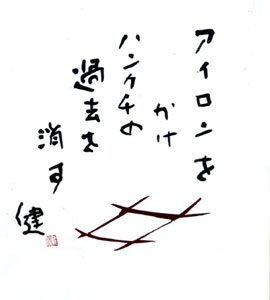 アイロンを
かけ
ハンケチの
過去を
消す
健